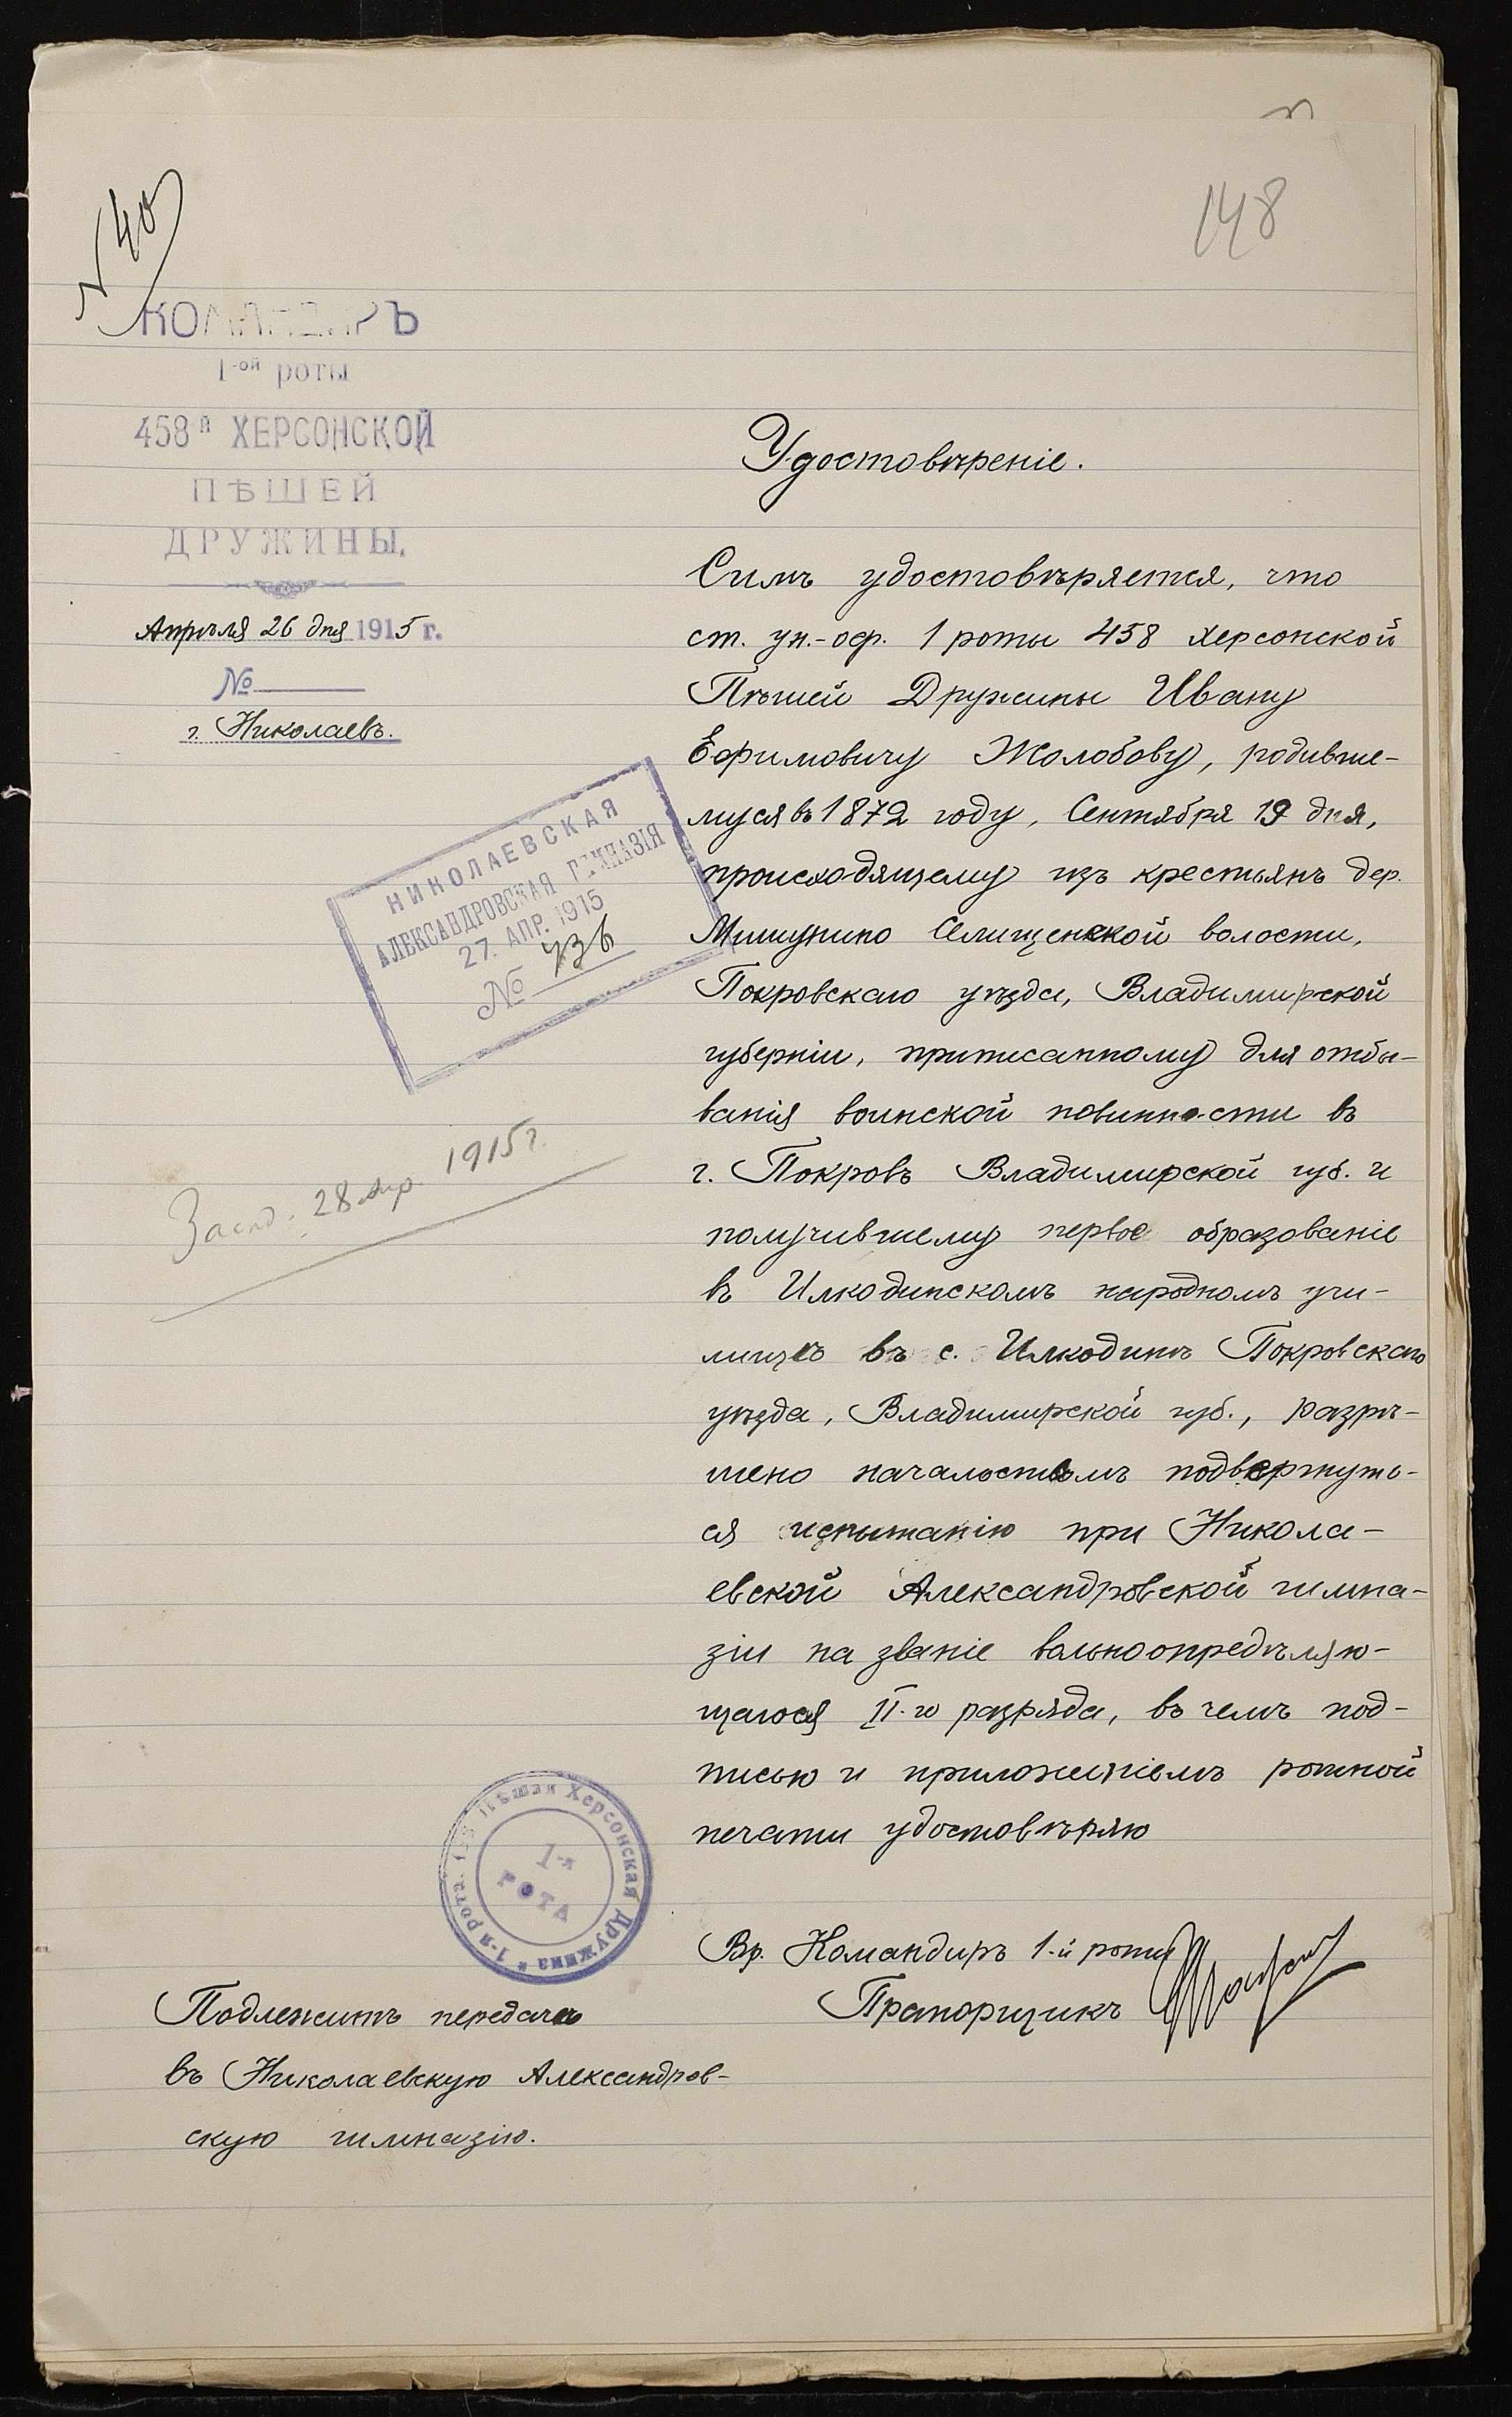 № 40
148
КОМАНДИРЪ
1-ой роты
458й ХЕРСОНСКОЙ
ПѢШЕЙ
ДРУЖИНЫ.
Апрѣля 26 дня 1915 г.
№
г. Николаевъ.
НИКОЛАЕВСКАЯ
АЛЕКСАНДРОВСКАЯ ГИМНАЗІЯ
27. АПР. 1915
№ 736
Засѣд. 28 Апр. 1915 г.
Удостовѣреніе.
Симъ удостовѣряется, что
ст. ун.-оф. 1 роты 458 Херсонской
Пѣшей Дружины Ивану
Ефимовичу Жолобову, родивше-
муся въ 1872 году, Сентября 19 дня,
происходящему изъ крестьянъ дер.
Мишунино Селищенской волости,
Покровскаго уѣзда, Владимирской
губерніи, приписанному для отбы-
ванія воинской повинности въ
г. Покровъ Владимирской губ. и
получившему первое образованіе
въ Илкодинскомъ народномъ учи-
лищѣ въ с. Илкодинѣ Покровскаго
уѣзда, Владимирской губ., разрѣ-
шено начальствомъ подвергнуть-
ся испытанію при Никола-
евской Александровской гимна-
зіи на званіе вольноопредѣляю-
щагося II-го разряда, въ чемъ под-
писью и приложеніемъ ротной
печати удостовѣряю
Вр. Командиръ 1-й роты
Прапорщикъ
1-я рота 458 пѣшая Херсонская Дружина *
1-я
РОТА
Подлежитъ передачѣ
въ Николаевскую Александров-
скую гимназію.